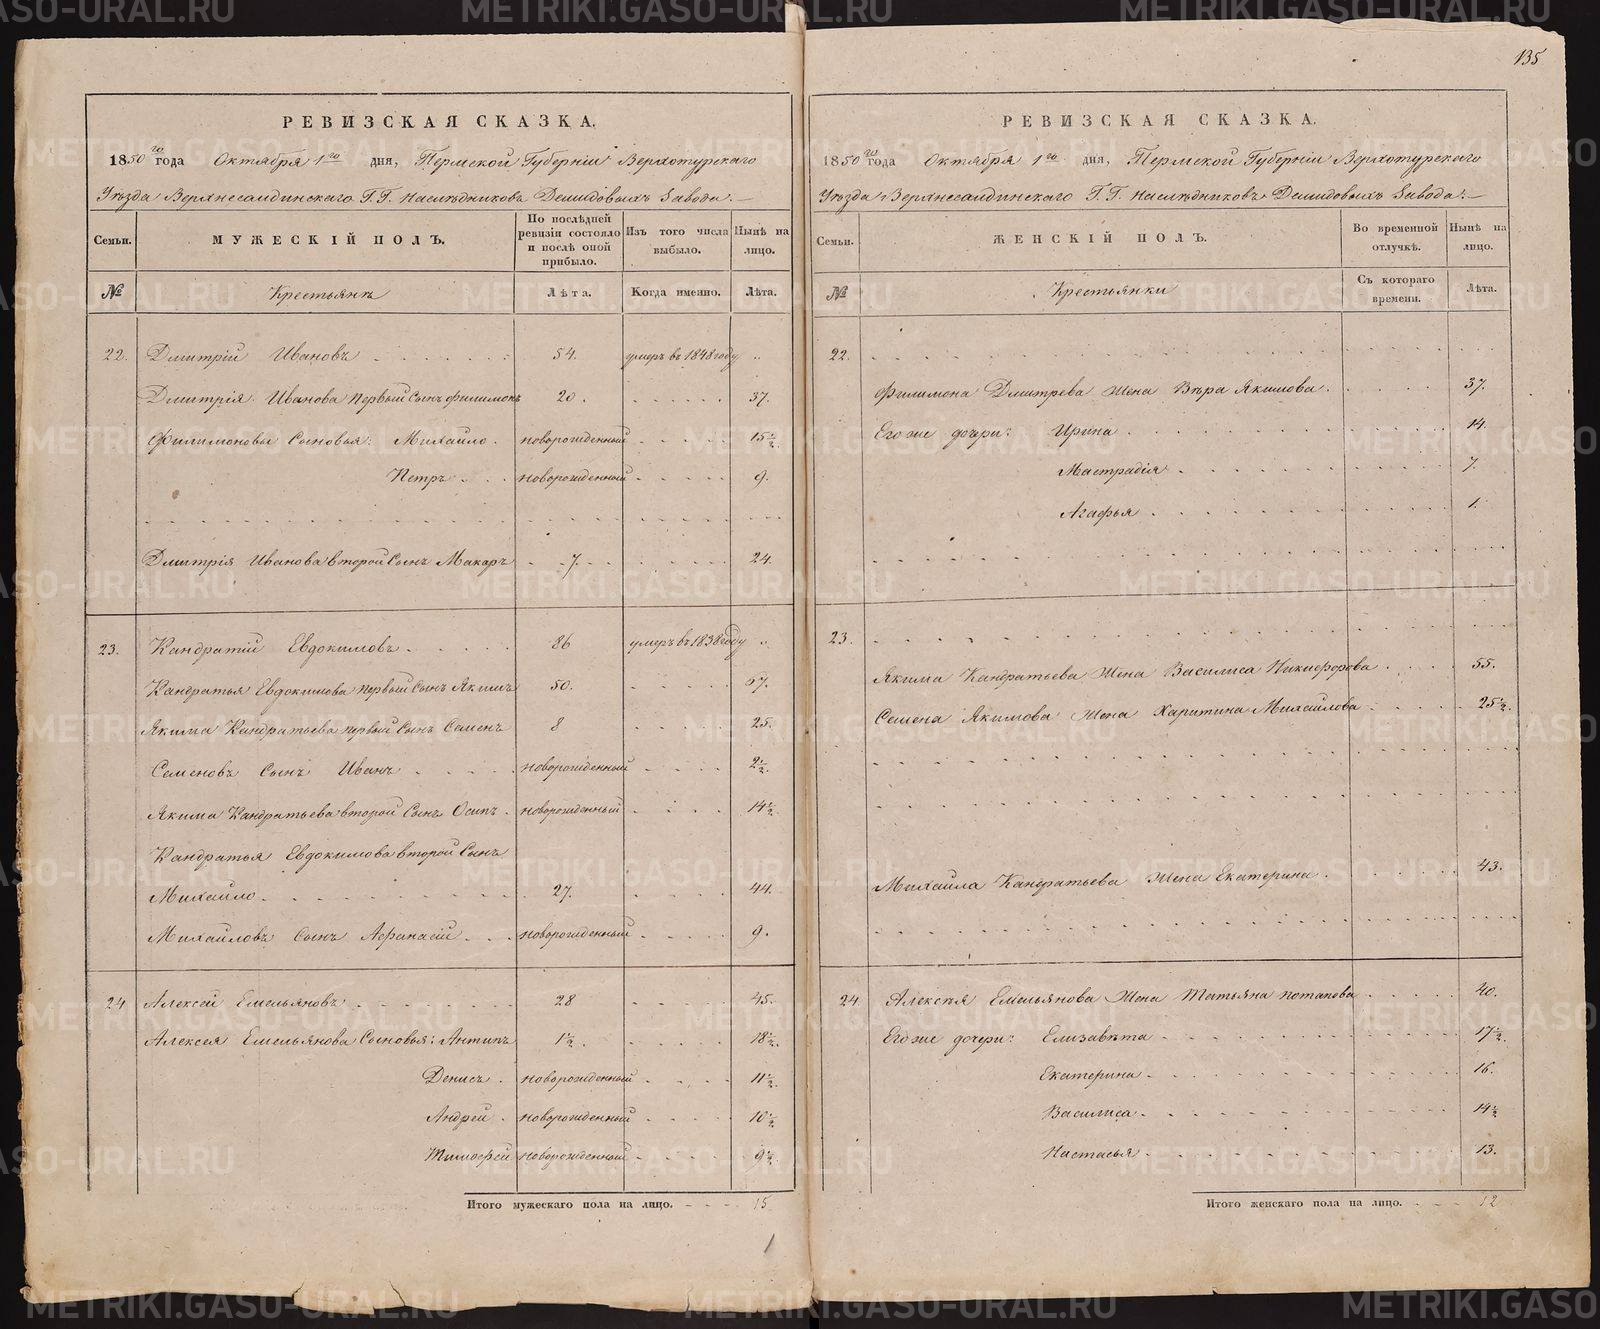 135
РЕВИЗСКАЯ СКАЗКА.
1850го года Октября 1го дня, Пермской Губерніи Верхотурскаго
Уѣзда Верхнесалдинскаго Г.Г. Наслѣдниковъ Демидовыхъ Завода:
Семьи.
МУЖЕСКІЙ ПОЛЪ.
По послѣдней ревизіи состояло и послѣ оной прибыло.
Изъ того числа выбыло.
Нынѣ на лицо.
№
Крестьянъ
Лѣта.
Когда именно.
Лѣта.
22. Дмитрій Ивановъ 54. умеръ въ 1848 году
Дмитрія Иванова первый Сынъ Филимонъ 20. 37.
Филимоновы Сыновья: Михайло новорожденный 15½.
Петръ новорожденный 9.
Дмитрія Иванова второй Сынъ Макаръ 7. 24.
23. Кандратій Евдокимовъ 86 умеръ въ 1838 году
Кандратья Евдокимова первый Сынъ Якимъ 50. 67.
Якима Кандратьева первый Сынъ Семенъ 8 25.
Семеновъ Сынъ Иванъ новорожденный 2½.
Якима Кандратьева второй Сынъ Осипъ новорожденный 14½.
Кандратья Евдокимова второй Сынъ
Михайло 27. 44.
Михайловъ Сынъ Афанасій новорожденный 9.
24 Алексей Емельяновъ 28 45.
Алексея Емельянова Сыновья: Антипъ 1½. 18½.
Денисъ новорожденный 11½.
Андрей новорожденный 10½.
Тимофей новорожденный 9½.
Итого мужескаго пола на лицо. 15
1
РЕВИЗСКАЯ СКАЗКА.
1850го года Октября 1го дня, Пермской Губерніи Верхотурскаго
Уѣзда Верхнесалдинскаго Г.Г. Наслѣдниковъ Демидовыхъ Завода:
Семьи.
ЖЕНСКІЙ ПОЛЪ.
Во временной отлучкѣ.
Нынѣ на лицо.
№
Крестьянки
Съ котораго времени.
Лѣта.
22.
Филимона Дмитрева Жена Вѣра Якимова 37.
Его же дочери: Ирина 14.
Мастрадія 7.
Агафья 1.
23.
Якима Кандратьева Жена Василиса Никифорова 55.
Семена Якимова Жена Харитина Михайлова 25½.
Михайла Кандратьева Жена Екатерина 43.
24 Алексѣя Емельянова Жена Татьяна Потапова 40.
Его же дочери: Елизавѣта 17½.
Екатерина 16.
Василиса 14½
Настасья 13.
Итого женскаго пола на лицо. 12
METRIKI.GASO-URAL.RU